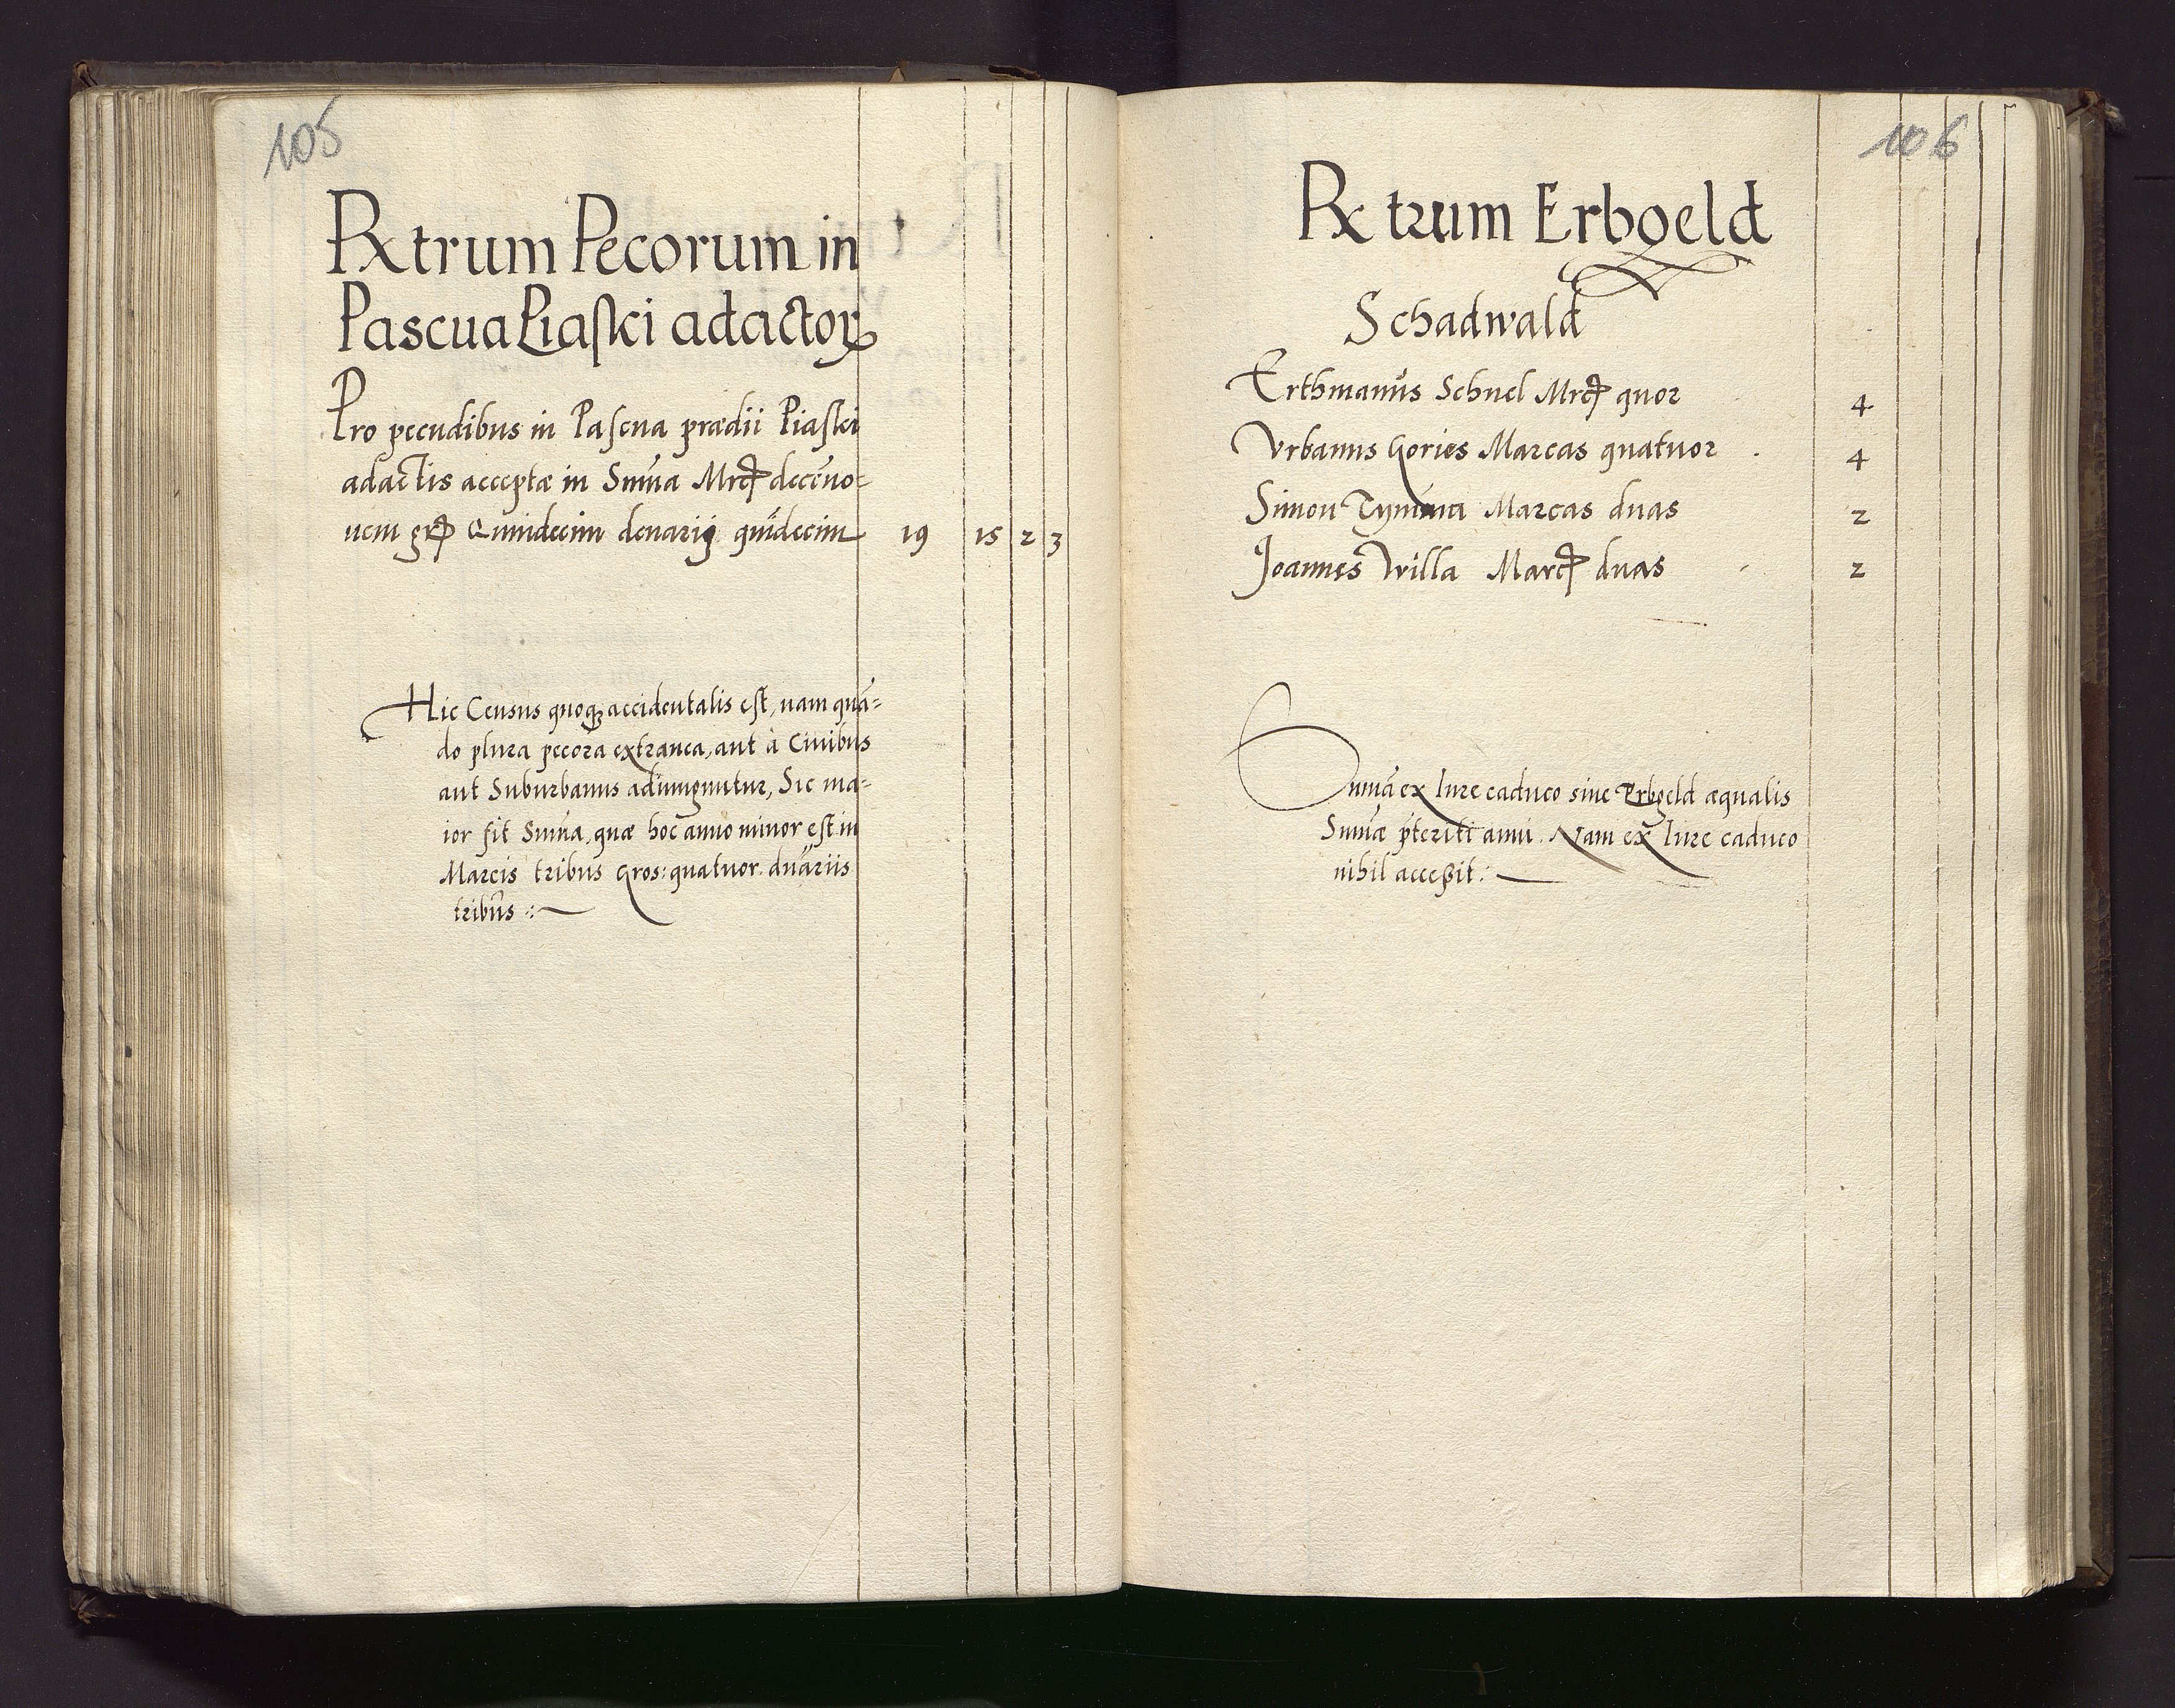 105
Rxtrum Pecorum in
Pascua Piaski adactorꝝ
Pro pecudibus in Pascua prædii Piaski
adactis acceptæ in Sum̄a Mrcꝭ decēno=
uem grꝭ Quindecim denarij quīdecim 19 15 2 3
Hic Census quoqꝫ accidentalis est, nam quā=
do plura pecora extranea, aut à Ciuibus
aut Suburbanis adiunguntur, Sic ma=
ior fit Sum̄a, quæ hoc anno minor est in
Marcis tribus Gros: quatuor
tribus
106
Rxtrum Erbgeld
Schadwald
Erthmanus Schnel Mrcꝭ quor 4
Vrbanus Gories Marcas quatuor 4
Simon Tymma Marcas duas 2
Joannes Willa Marcꝭ duas 2
Sum̄a ex Iure caduco siue Erbgeld æqualis
Sum̄æ p̄teriti anni. Nam ex Iure caduco
nihil acceßit: